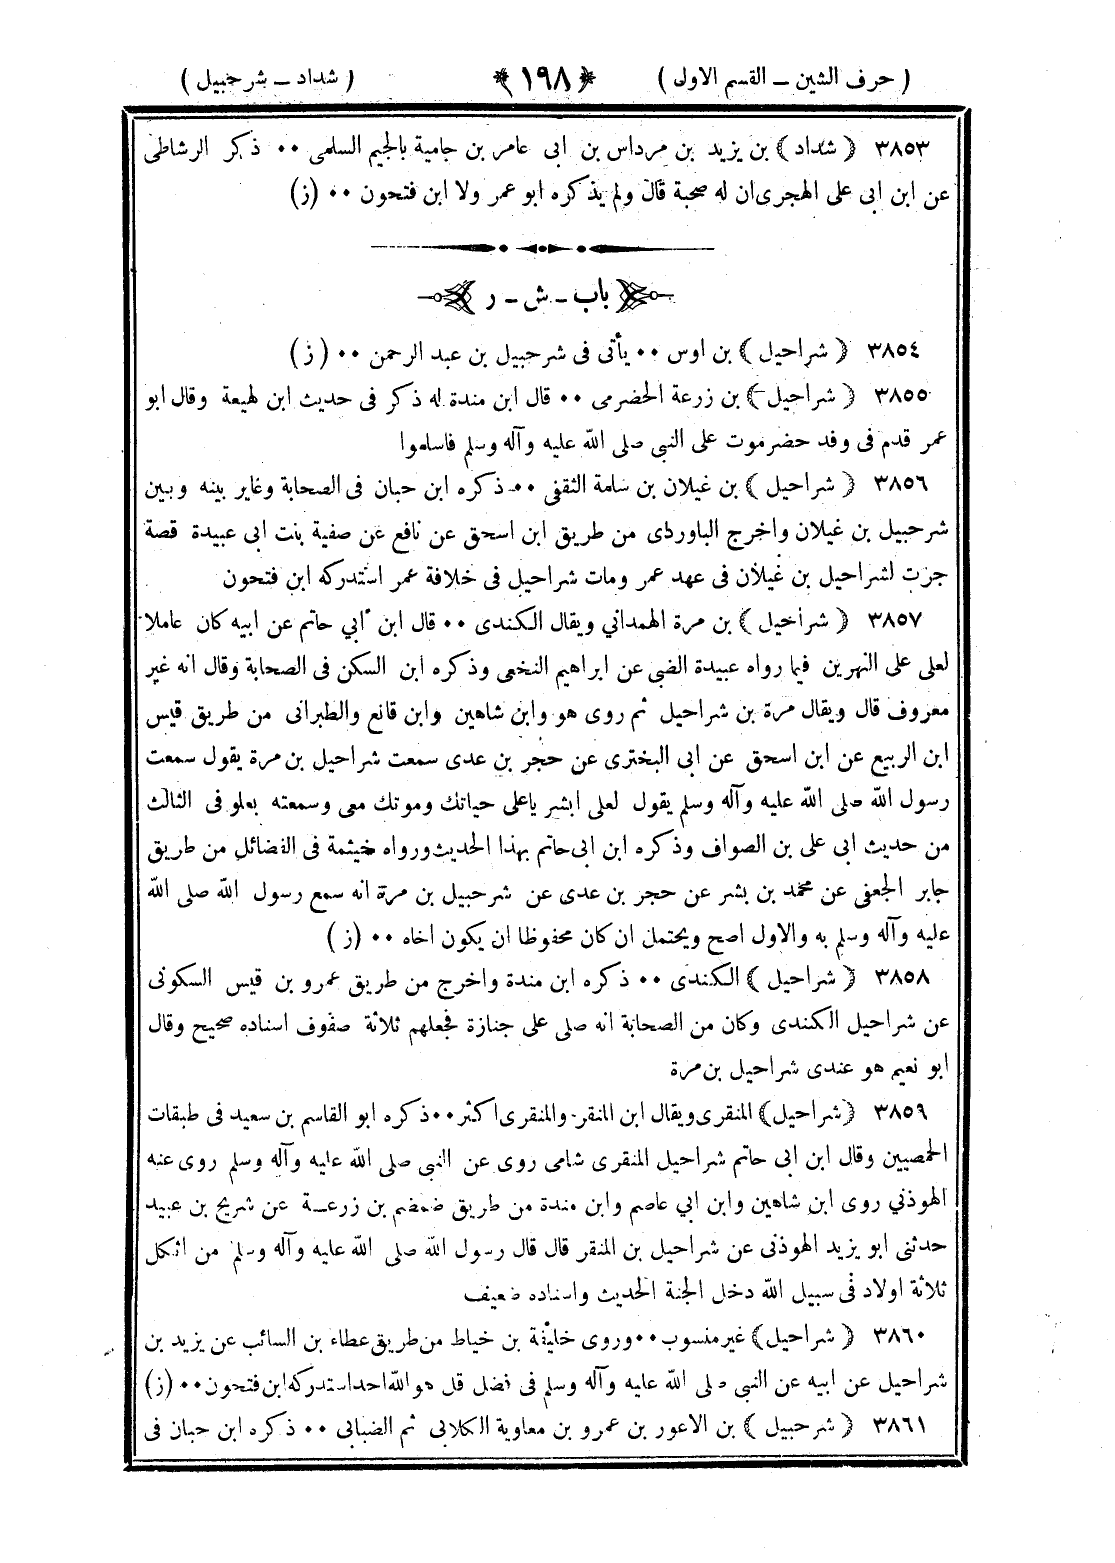 ( حرف الشين ــ القسم الاول ) ﴿ ١٩٨ ﴾ ( شداد ــ شرحبيل )
٣٨٥٣ ﴿ شداد ﴾ بن يزيد بن مرداس بن ابى عامر بن جامية بالجيم السلمى ٠٠ ذكر الرشاطى
عن ابن ابى على الهجرى ان له صحبة قال ولم يذكره ابو عمر ولا ابن فتحون ٠٠ (ز)
باب ـ ش ـ ر
٣٨٥٤ ﴿ شراحيل ﴾ بن اوس ٠٠ يأتى فى شرحبيل بن عبد الرحمن ٠٠ ( ز )
٣٨٥٥ ﴿ شراحيل ﴾ بن زرعة الحضرمى ٠٠ قال ابن مندة له ذكر فى حديث ابن لهيعة وقال ابو
عمر قدم فى وفد حضرموت على النبى صلى الله عليه وآله وسلم فاسلموا
٣٨٥٦ ﴿ شراحيل ﴾ بن غيلان بن سلمة الثقفى ٠٠ ذكره ابن حبان فى الصحابة وغاير بينه وبين
شرحبيل بن غيلان واخرج الباوردى من طريق ابن اسحق عن نافع عن صفية بنت ابى عبيدة قصة
جرت لشراحيل بن غيلان فى عهد عمر ومات شراحيل فى خلافة عمر استدركه ابن فتحون
٣٨٥٧ ﴿ شراحيل ﴾ بن مرة الهمداني ويقال الكندى ٠٠ قال ابن ابي حاتم عن ابيه كان عاملا
لعلى على النهرين فيما رواه عبيدة الضبى عن ابراهيم النخعى وذكره ابن السكن فى الصحابة وقال انه غير
معروف قال ويقال مرة بن شراحيل ثم روى هو وابن شاهين وابن قانع والطبرانى من طريق قيس
ابن الربيع عن ابن اسحق عن ابى البخترى عن حجر بن عدى سمعت شراحيل بن مرة يقول سمعت
رسول الله صلى الله عليه وآله وسلم يقول لعلى ابشر ياعلى حياتك وموتك معى وسمعته بعلو فى الثالث
من حديث ابى على بن الصواف وذكره ابن ابى حاتم بهذا الحديث ورواه خيثمة فى الفضائل من طريق
جابر الجعفى عن محمد بن بشر عن حجر بن عدى عن شرحبيل بن مرة انه سمع رسول الله صلى الله
عليه وآله وسلم به والاول اصح ويحتمل ان كان محفوظا ان يكون اخاه ٠٠ ( ز )
٣٨٥٨ ﴿ شراحيل ﴾ الكندى ٠٠ ذكره ابن مندة واخرج من طريق عمرو بن قيس السكونى
عن شراحيل الكندى وكان من الصحابة انه صلى على جنازة فجعلهم ثلاثة صفوف اسناده صحيح وقال
ابو نعيم هو عندى شراحيل بن مرة
٣٨٥٩ ﴿شراحيل﴾ المنقرى ويقال ابن المنقر والمنقرى اكثر ٠٠ ذكره ابو القاسم بن سعيد فى طبقات
الحمصيين وقال ابن ابى حاتم شراحيل المنقرى شامى روى عن النبى صلى الله عليه وآله وسلم روى عنه
الهوذني روى ابن شاهين وابن ابي عاصم وابن مندة من طريق ضمضم بن زرعــة عن شريح بن عبيد
حدثنى ابو يزيد الهوذنى عن شراحيل بن المنقر قال قال رسول الله صلى الله عليه وآله وسلم من اثكل
ثلاثة اولاد فى سبيل الله دخل الجنة الحديث واسناده ضعيف
٣٨٦٠ ﴿ شراحيل﴾ غير منسوب ٠٠ وروى خليفة بن خياط من طريق عطاء بن السائب عن يزيد بن
شراحيل عن ابيه عن النبى صلى الله عليه وآله وسلم فى فضل قل هو الله احد استدركه ابن فتحون ٠٠ (ز)
٣٨٦١ ﴿ شرحبيل ﴾ بن الاعور بن عمرو بن معاوية الكلابى ثم الضبابى ٠٠ ذكره ابن حبان فى